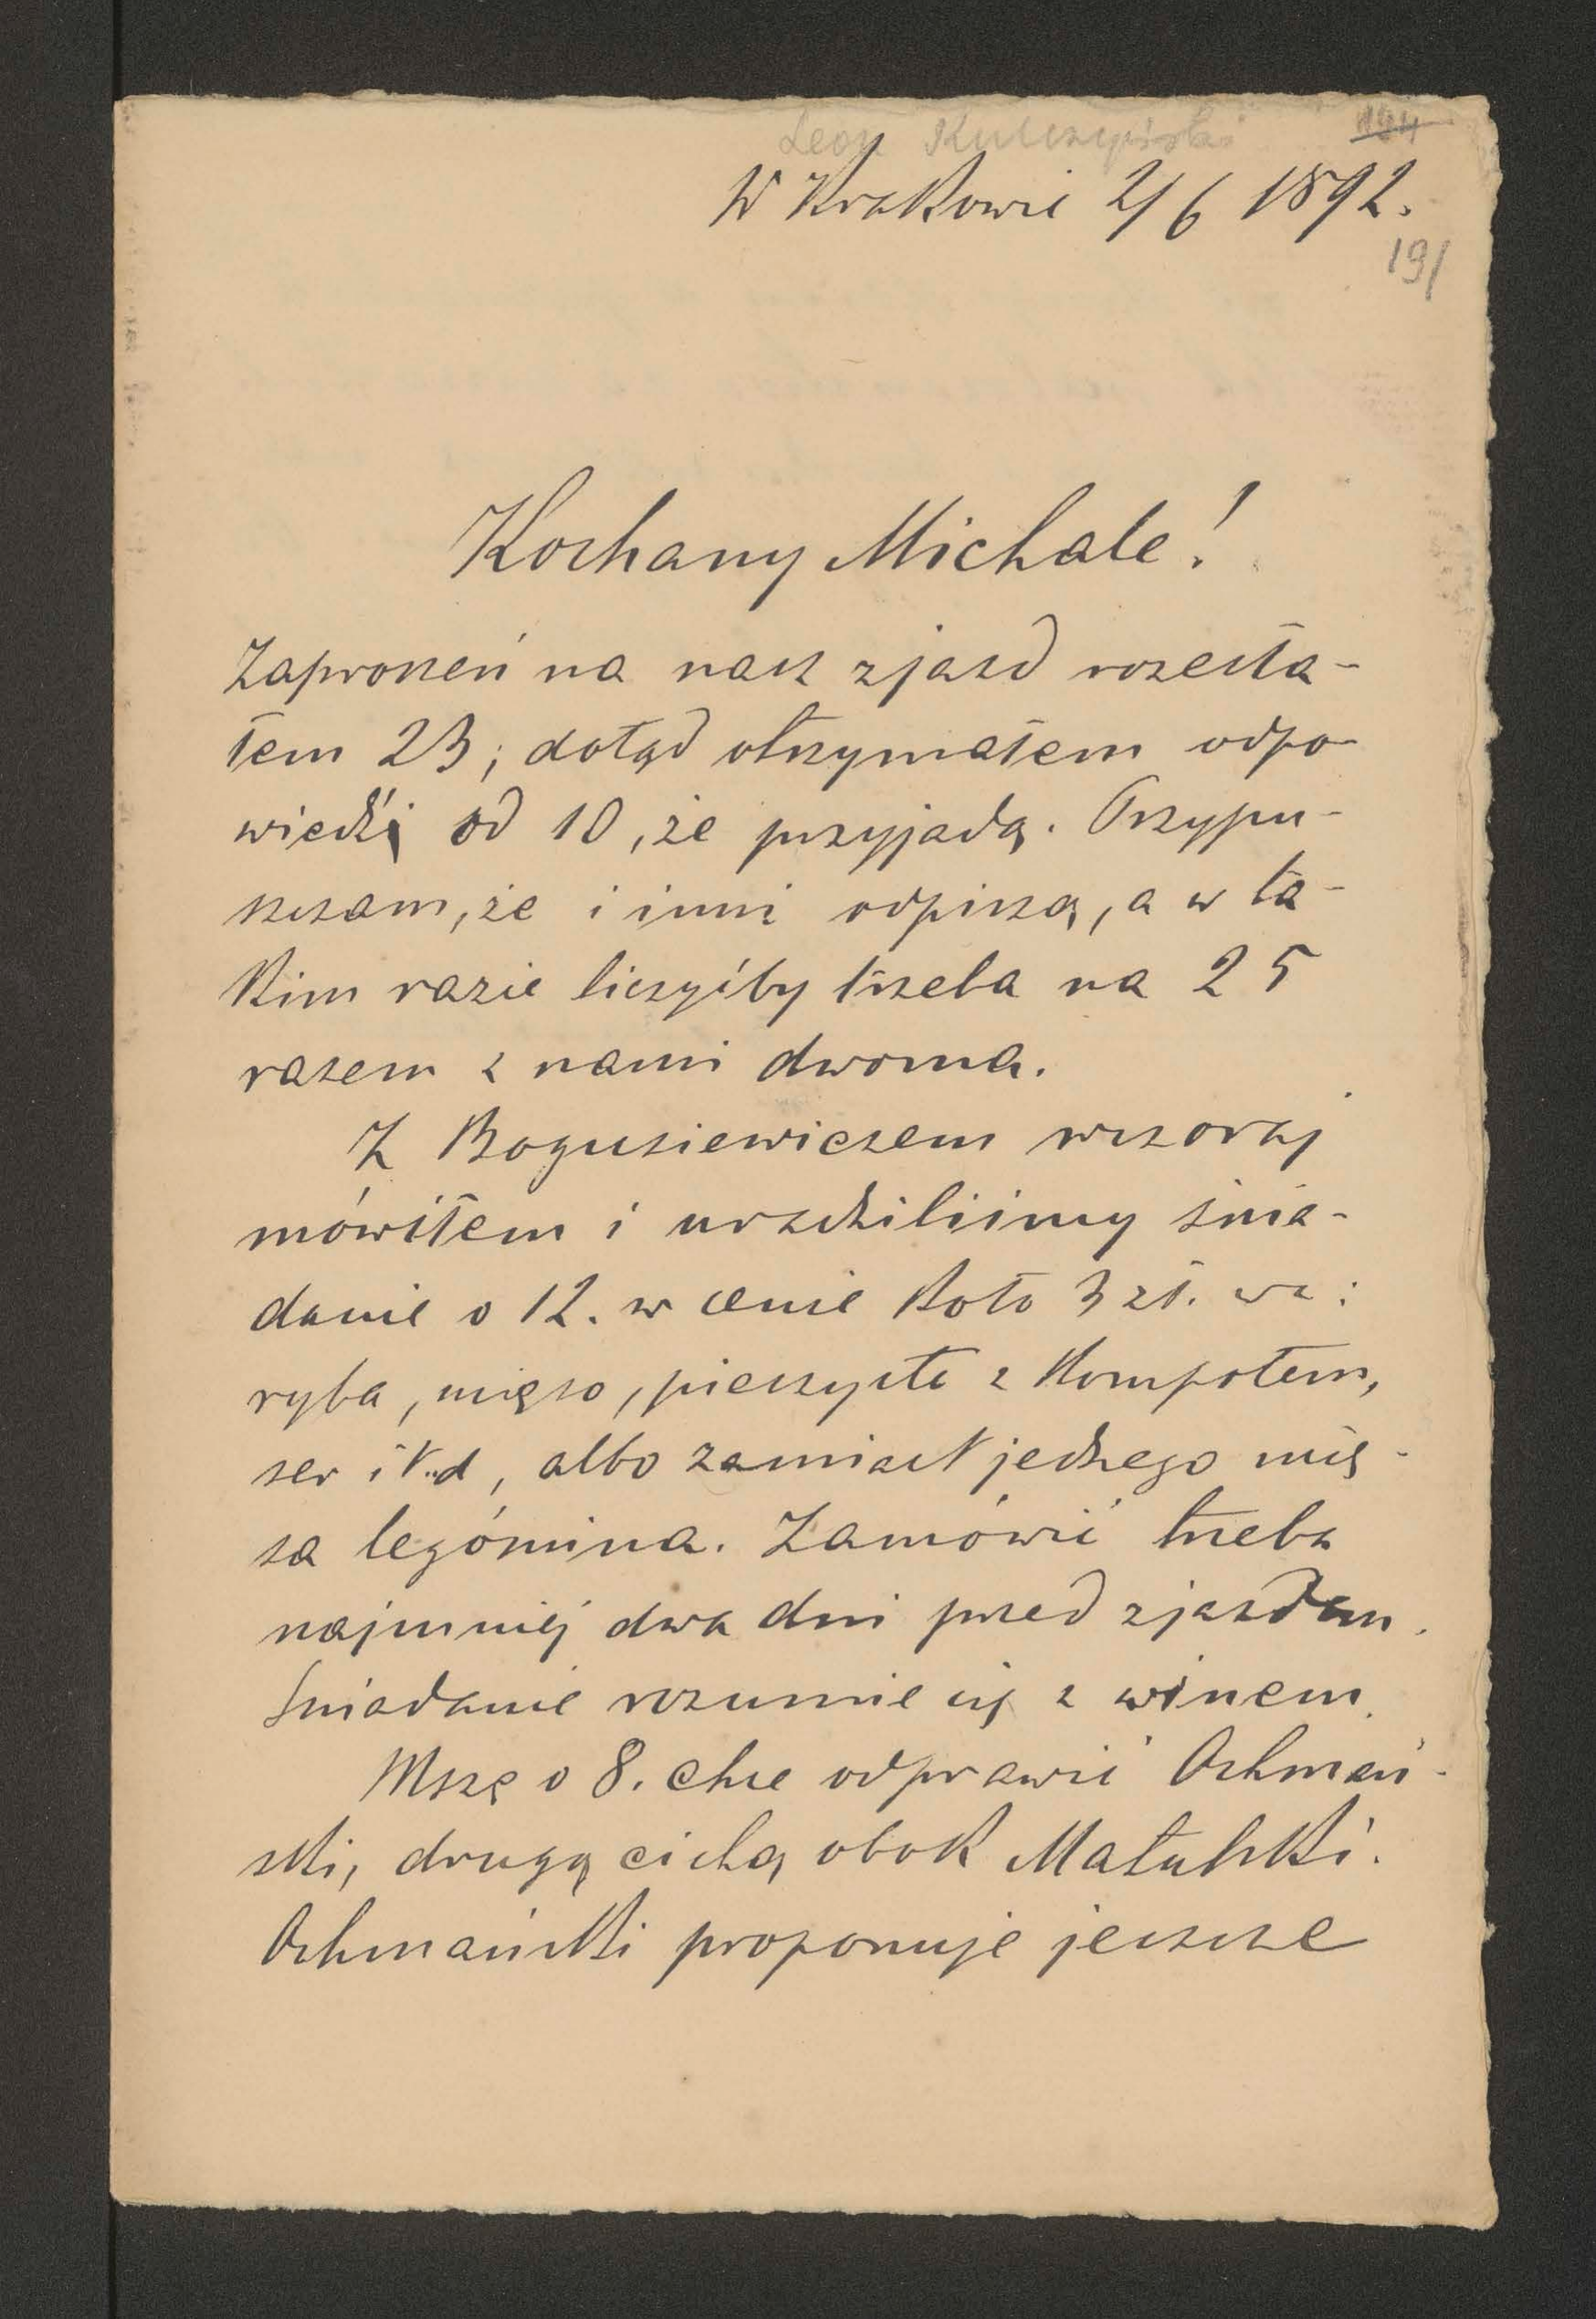 Leon Kulczyński
194
W Krakowie 2/6 1892.
191
Kochany Michale!
Zaproszeń na nasz zjazd rozesła-
łem 23; dotąd otrzymałem odpo-
wiedź od 10, że przyjadą. Przypu-
szczam, że i inni odpiszą, a w ta-
kim razie liczyćby trzeba na 25
razem z nami dwoma.
Z Bogusiewiczem wczoraj
mówiłem i uradziliśmy śnia-
danie o 12. w cenie koło 3 zł. wa:
ryba, mięso, pieczyste z kompotem,
ser itd, albo zamiast jednego mię-
sa legómina. Zamówić trzeba
najmniej dwa dni przed zjazdem.
Śniadanie rozumie się z winem.
Mszę o 8. chce odprawić Ochmań-
ski, drugą cichą obok Matulski.
Ochmański proponuje jeszcze